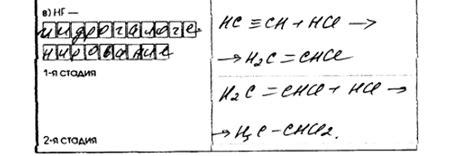 в) НГ —
гидрогалоге-
нирование
1-я стадия
2-я стадия
HC ≡ CH + HCl →
→ H₂C = CHCl
H₂C = CHCl + HCl →
→ H₃C – CHCl₂.